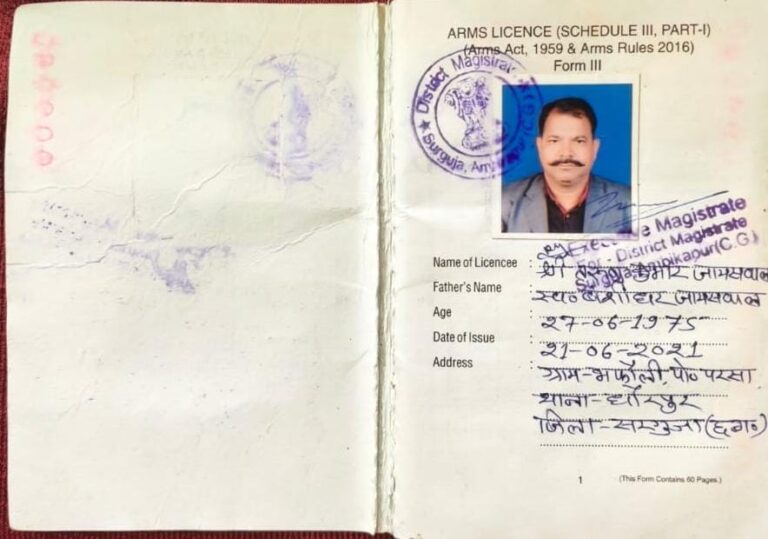 ARMS LICENCE (SCHEDULE III, PART-I)
(Arms Act, 1959 & Arms Rules 2016)
Form III
District Magistrate
Surguja, (C.G.)
Executive Magistrate
For - District Magistrate
Surguja Ambikapur (C.G.)
Name of Licencee : श्री कुमार जायसवाल
Father's Name : स्व० बंशीधर जायसवाल
Age : २७-०६-१९७५
Date of Issue : २१-०६-२०२१
Address : ग्राम-भफौली, पो० परसा
थाना-धौरपुर
जिला-सरगुजा (छ.ग.)
1 (This Form Contains 60 Pages.)